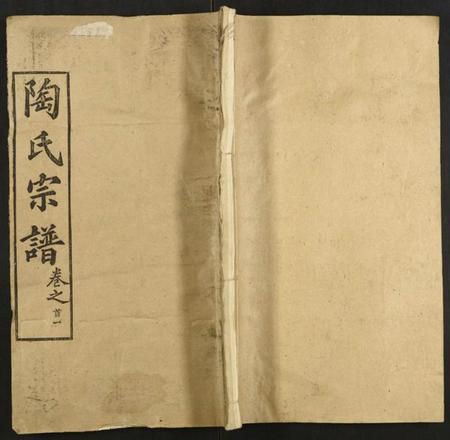 陶氏宗譜
卷之首一